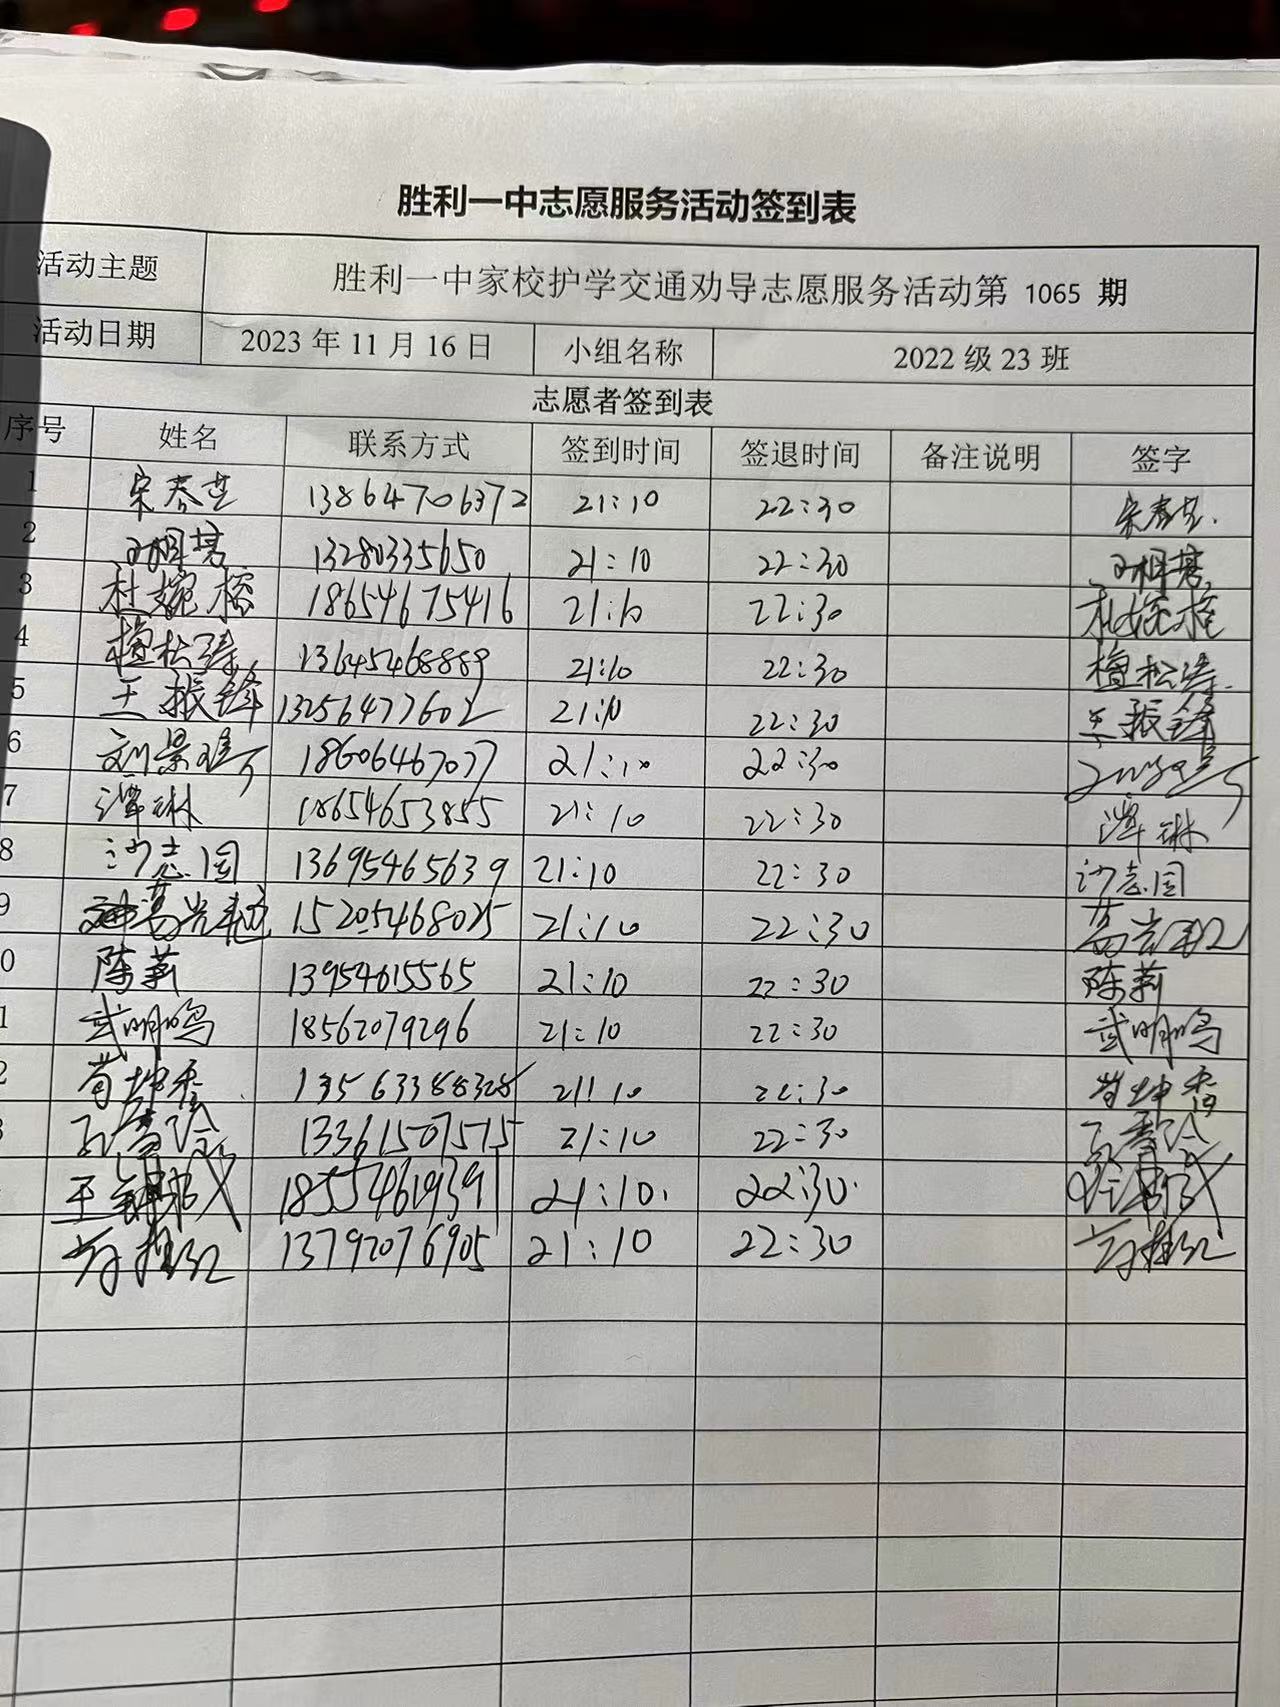 胜利一中志愿服务活动签到表
活动主题 胜利一中家校护学交通劝导志愿服务活动第 1065 期
活动日期 2023 年 11 月 16 日 小组名称 2022 级 23 班
志愿者签到表
序号 姓名 联系方式 签到时间 签退时间 备注说明 签字
1 宋春芝 13864706372 21:10 22:30 宋春芝.
2 13280335650 21:10 22:30
3 杜婉榕 18654675416 21:10 22:30 杜婉榕
4 檀松涛 13645468889 21:10 22:30 檀松涛.
5 王振锋 13256477602 21:10 22:30 王振锋
6 刘景 18606467077 21:10 22:30
7 谭琳 18654653855 21:10 22:30 谭琳
8 沙志国 13695465639 21:10 22:30 沙志国
9 葛岩 15205468025 21:10 22:30 葛岩
0 陈莉 13954615565 21:10 22:30 陈莉
1 武明鸣 18562079296 21:10 22:30 武明鸣
2 苟坤香 13563388328 21:10 22:30 苟坤香
3 13361507515 21:10 22:30
王 18554619391 21:10. 22:30.
13792076905 21:10 22:30